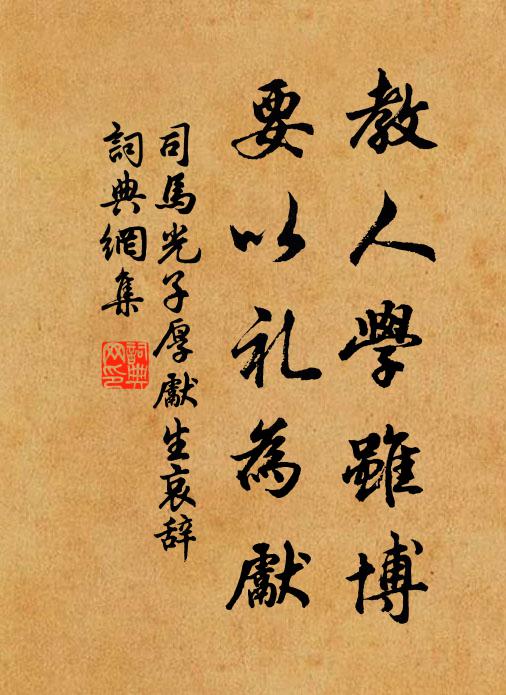 教人學雖博
要以礼為獻
司馬光子厚獻生哀辞
詞典網集
詞典網印